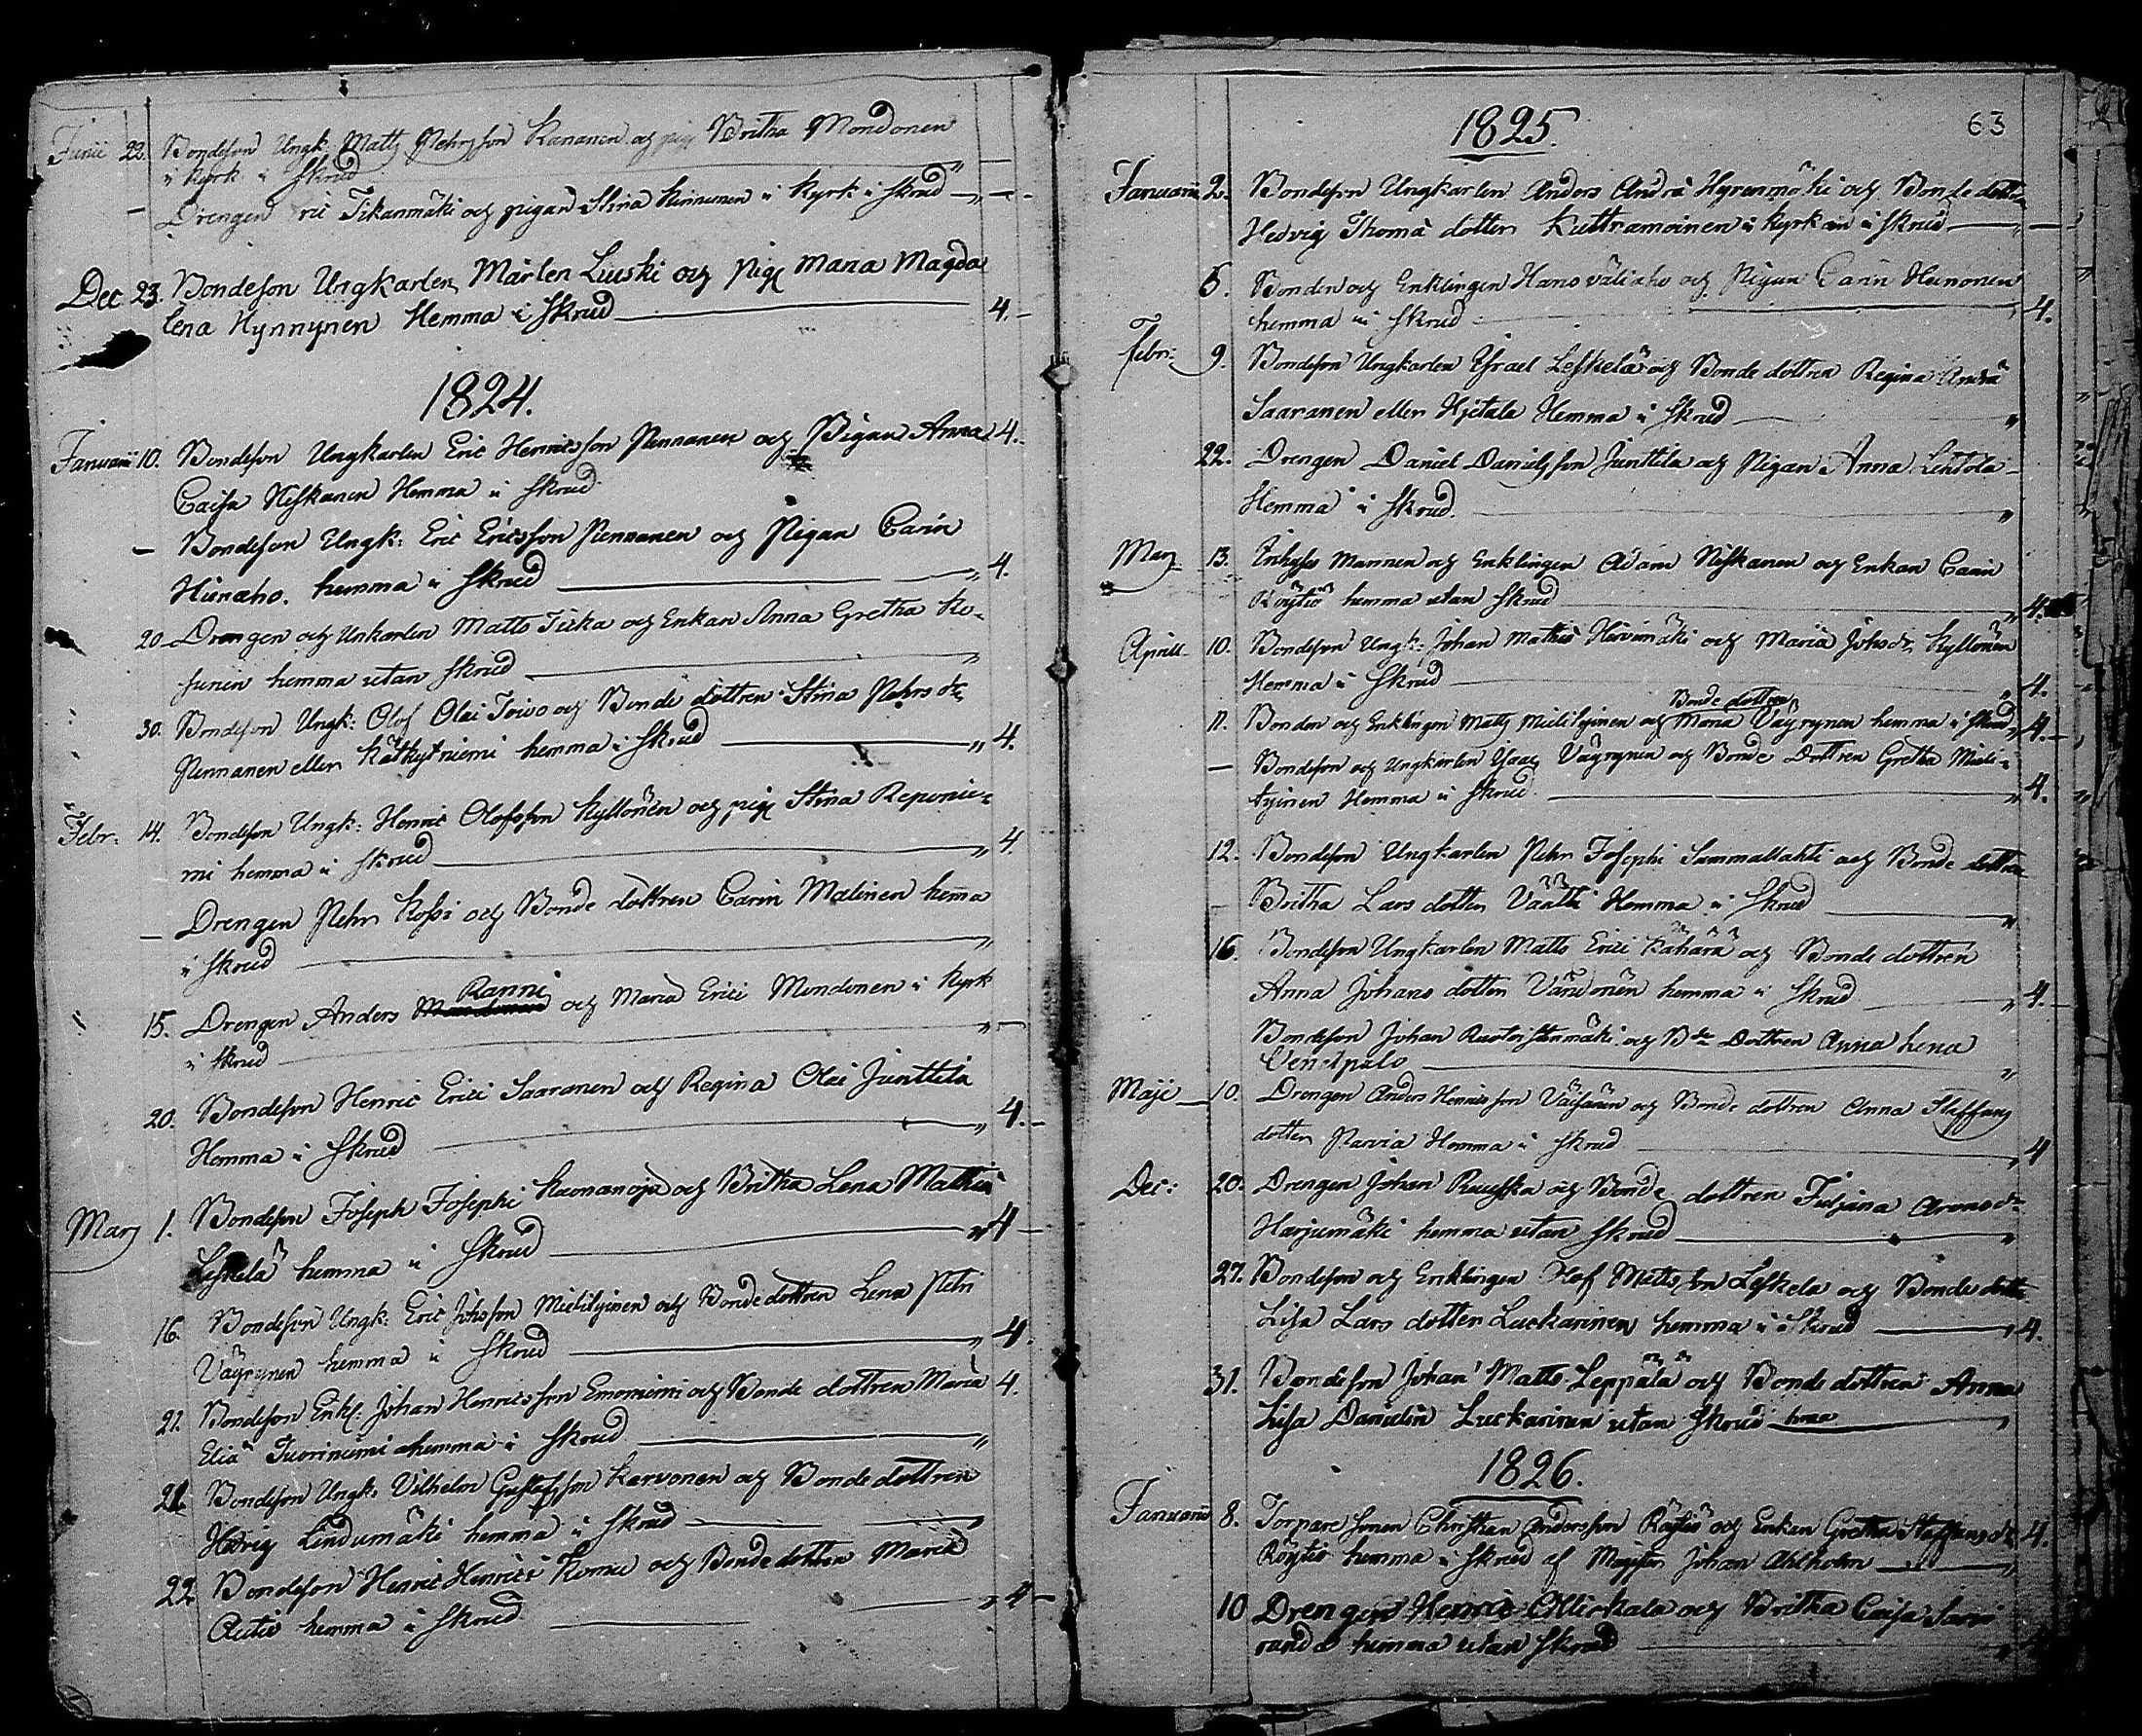 Junii 22. Bondeson Ungk: Matts Pehrsson Kananen og pig Britha Mondonen
i Kyrk i Skrud „ —
— Drengen Eric Tikanmäki og pigan Stina Kinnunen i Kyrk i Skrud — „ —
Dec 23. Bondeson Ungkarlen Mårten Luuski og pig Maria Magda
lena Hynnynen Hemma i Skrud 4. -
1824.
Januarii 10. Bondeson Ungkarlen Eric Henricsson Pennanen og Pigan Anna 4. -
Caisa Niskanen Hemma i Skrud
— Bondeson Ungk: Eric Ericsson Pennanen og Pigan Carin
Hieraho. hemma i Skrud „ 4.
20. Drengen og Unkarlen Matts Tirka og Enkan Anna Gretha Ko-
sunen hemma utan Skrud „
30. Bondeson Ungk: Olof Olai Toivo og Bonde dottren Stina Pehrs dr
Pennanen eller Kätkytniemi hemma i Skrud „ 4.
Febr: 14. Bondeson Ungk: Henric Olofsson Kyllönen og pig Stina Reponie-
mi hemma i Skrud „ 4.
— Drengen Pehr Kossi og Bonde dottren Carin Malinen hemma
i Skrud „
Ranni
15. Drengen Anders og Maria Erici Mondonen i Kyrk
i Skrud „ —
20. Bondeson Henric Erici Saaranen og Regina Olai Junttila
Hemma i Skrud „ 4. -
Marz 1. Bondeson Joseph Josephi Kaonanoja og Britha Lena Mathiæ
Leskelä hemma i Skrud „ 4 —
16. Bondeson Ungk: Eric Johsson Mielityinen og Bonde dottren Lena Petri
Väyrynen hemma i Skrud „ 4.
21. Bondeson Enkl: Johan Henricsson Emoniemi og Bonde dottren Maria 4.
Eliæ Tuoriniemi hemma i Skrud „
21. Bondeson Ungk: Vilhelm Gustafsson Karvonen og Bonde dottren
Hedvig Lindumäki hemma i Skrud
22 Bondeson Henric Henrici Komu og Bonde dottren Maria
Autio hemma i Skrud „ 4 —
63
1825.
Januarii 2. Bondeson Ungkarlen Anders Andræ Hyrynmäki og Bonde dottren
Hedvig Thomæ dotter Kuttramoinen i Kyrkan i Skrud „ —
6. Bonden og Enklingen Hans Väliaho og Pigan Carin Heinonen
hemma i Skrud 4.
Febr: 9. Bondeson Ungkarlen Israel Leskelä og Bonde dottren Regina Andræ
Saaranen eller Hietala Hemma i Skrud „
22. Drengen Daniel Danielsson Junttila og Pigan Anna Lehtola
Hemma i Skrud. „
Marz 13. Inhyses mannen og Enklingen Adam Niskanen og Enkan Carin
Röytiö hemma utan Skrud „ 4.
Aprill 10. Bondeson Ungk: Johan Mathiæ Hirvimäki og Maria Johsdr Kyllönen
Hemma i Skrud 4.
Bonde dottren
11. Bonden og Enklingen Matts Mielityinen og Maria Väyrynen hemma i Skrud „ 4. -
— Bondeson og Ungkarlen Isaac Väyrynen og Bonde Dottren Gretha Mieli-
tyinen Hemma i Skrud „ 4.
12. Bondeson Ungkarlen Pehr Josephi Sammallahti og Bonde dottren
Britha Lars dotter Väätti Hemma i Skrud „
16. Bondeson Ungkarlen Matts Erici Kähärä og Bonde dottren
Anna Johans dotter hemma i Skrud „ 4. -
Bondeson Johan og Bde Dottren Anna Lena
Venäpalo „
Maji 10. Drengen Anders Henricsson Väisänen og Bonde dottren Anna Staffans
dotter Parvia Hemma i Skrud „ 4
Dec: 20. Drengen Johan Rauska og Bonde dottren Juljana Aronsdr
Harjumäki hemma utan Skrud „
27. Bondeson og Enklingen Olof Mattsson Leskelä og Bonde dottr
Lisa Lars dotter Luckarinen hemma i Skrud „ 4.
31. Bondeson Johan Matts Leppälä og Bonde dottren Anna
Lisa Danielis Luckarinen utan Skrud hema „
1826.
Januarii 8. Torpare sonen Christian Andersson Röytiö og Enkan Gretha Staffans dr 4.
Röytiö hemma i Skrud af Magister Johan Ahlholm „
10 Drengen Henric Ollickala og Britha Caisa Sarvi
randa hemma utan Skrud „